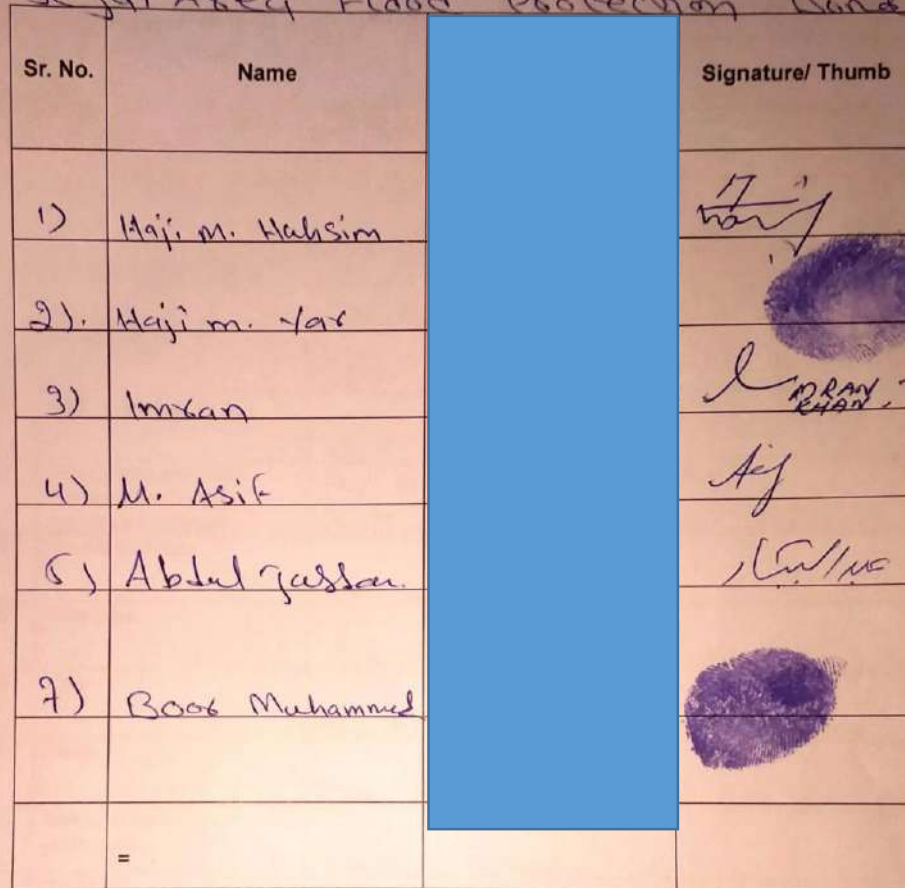 Flood Protection Bund
Sr. No. Name Signature/ Thumb
1) Haji M. Hahsim
2). Haji m. Yar
3) Imran IMRAN KHAN
4) M. Asif Asif
Abdul عبدالستار
7) Boor Muhammed
=